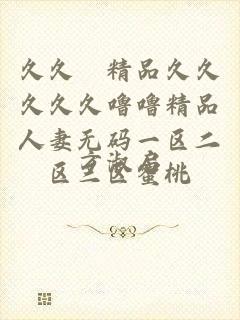 久久 精品久久
久久久噜噜精品
人妻无码一区二
区三区蜜桃